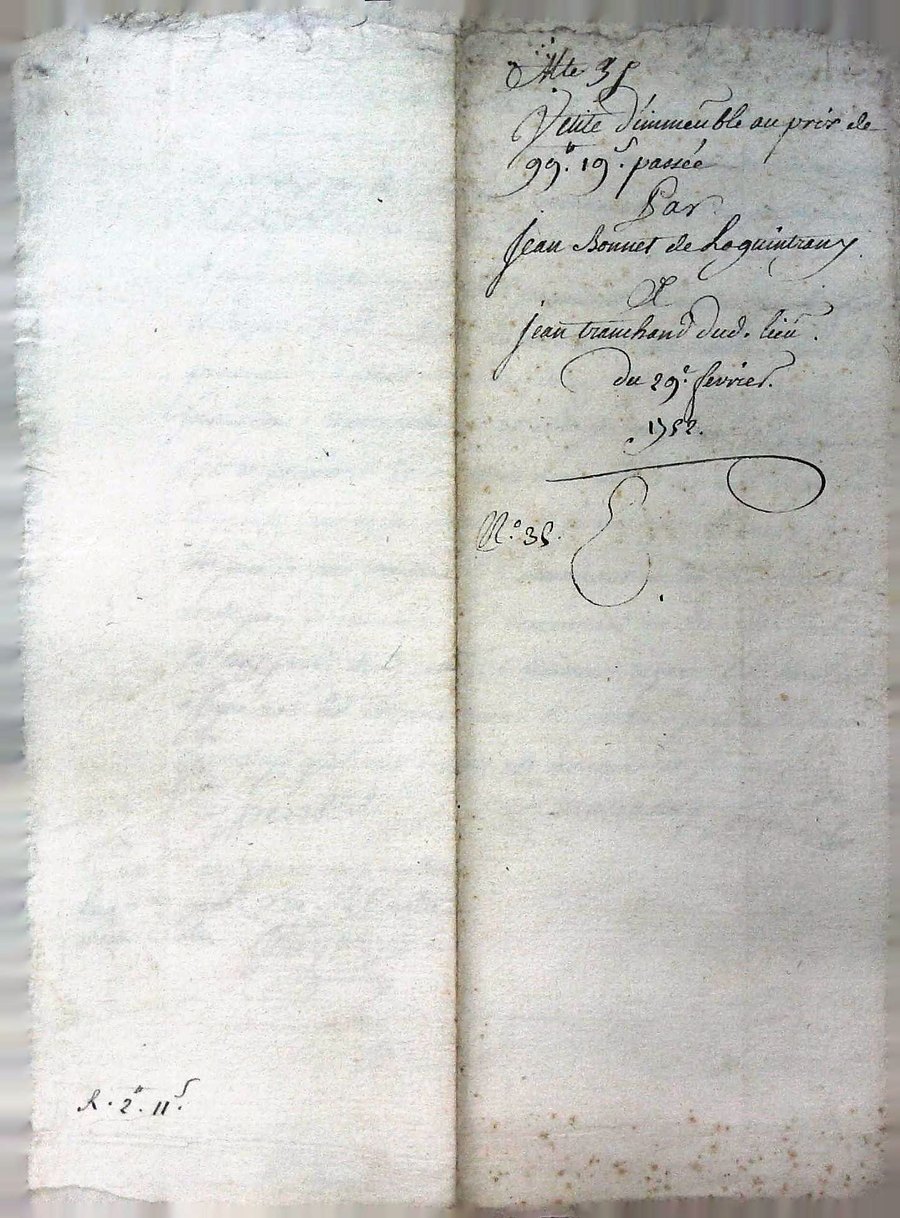 Cotte 35
Vente d'immeuble au prix de
99ᵗᵗ. 19ˢ. passée
Par
Jean Bonnet de Laquintrany.
A
jean tranchand dud. lieu.
du 29ᵉ. fevrier.
1752.
N.º 35.
R. 2ᵗᵗ. 11ˢ.